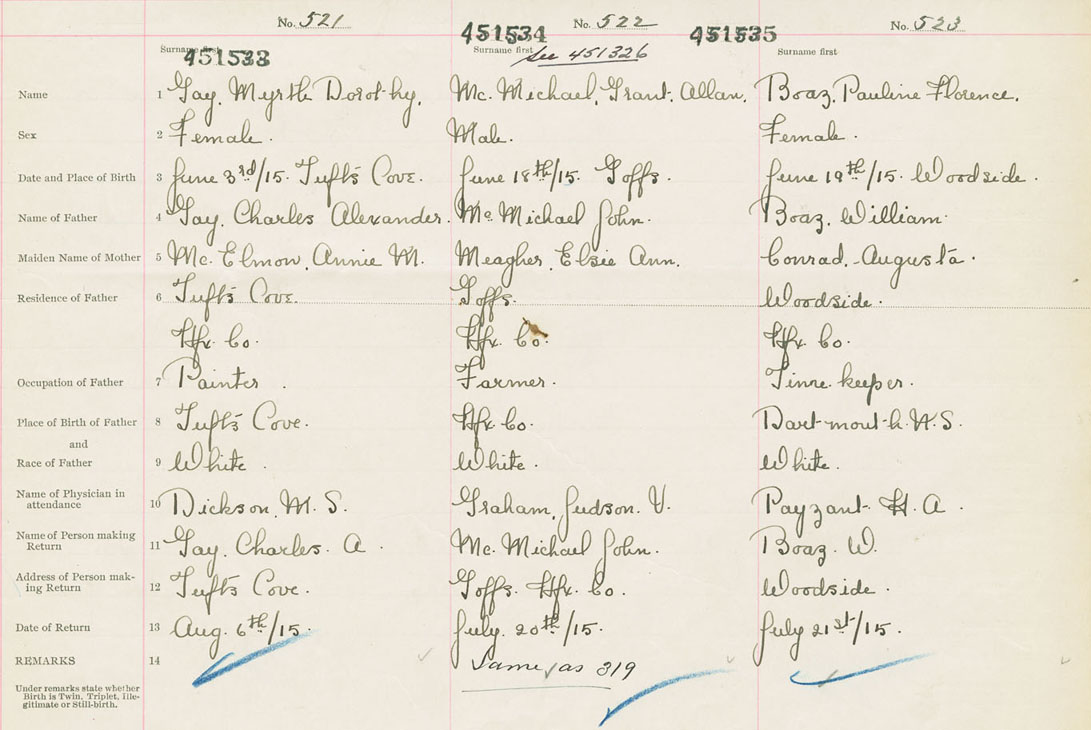 No. 521 No. 522 No. 523
451533 451534 451535
Surname first Surname first see 451326 Surname first
Name 1 Gay, Myrtle Dorothy. Mc. Michael, Grant. Allan. Boaz, Pauline Florence.
Sex 2 Female. Male. Female.
Date and Place of Birth 3 June 3rd/15. Tufts Cove. June 18th/15. Goffs. June 19th/15. Woodside.
Name of Father 4 Gay, Charles Alexander. Mc Michael John. Boaz, William.
Maiden Name of Mother 5 Mc. Elmon, Annie M. Meagher, Elsie Ann. Conrad, Augusta.
Residence of Father 6 Tufts Cove. Goffs. Woodside.
Hfx. Co. Hfx. Co. Hfx. Co.
Occupation of Father 7 Painter. Farmer. Time keeper.
Place of Birth of Father 8 Tufts Cove. Hfx Co. Dartmouth. N.S.
and
Race of Father 9 White. White. White.
Name of Physician in attendance 10 Dickson, M. S. Graham, Judson. V. Payzant H. A.
Name of Person making Return 11 Gay, Charles. A. Mc. Michael John. Boaz. W.
Address of Person making Return 12 Tufts Cove. Goffs. Hfx. Co. Woodside.
Date of Return 13 Aug. 6th/15. July. 20th/15. July 21st/15.
REMARKS 14 Same as 319
Under remarks state whether
Birth is Twin, Triplet, Ille-
gitimate or Still-birth.